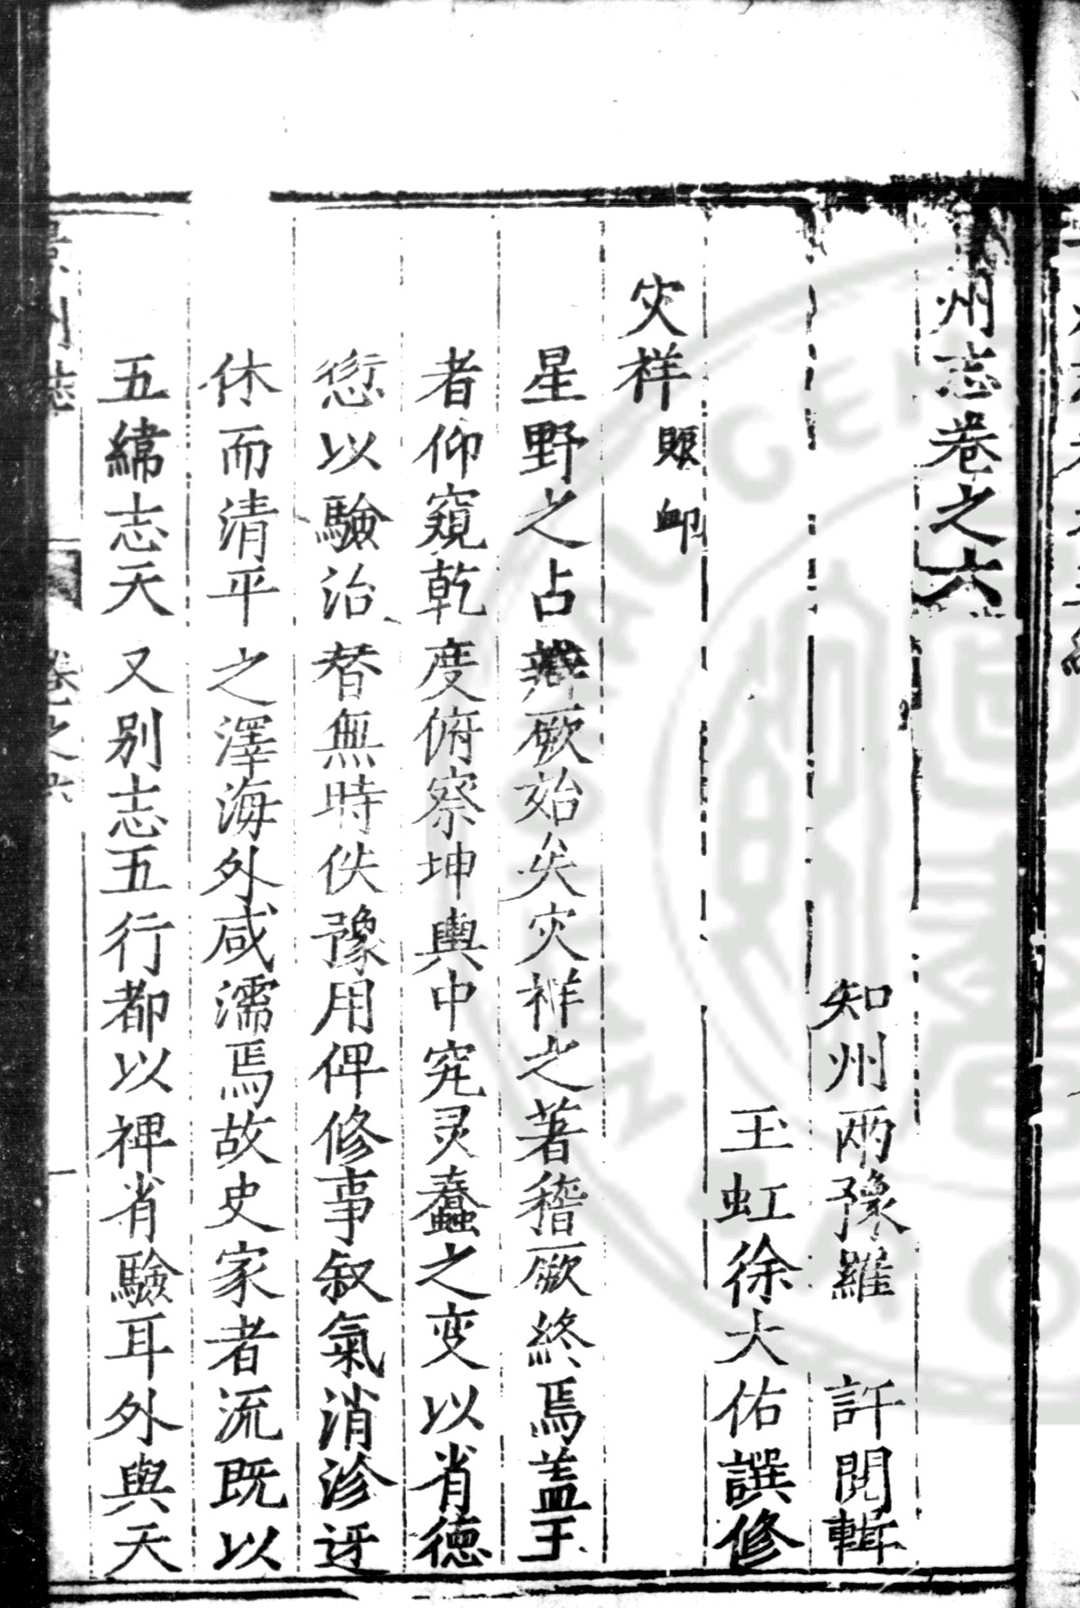 州志卷之六
知州兩豫羅許閱輯
玉虹徐大佑譔修
灾祥賑卹
星野之占辨厥始矣灾祥之著稽厥終焉蓋王
者仰窺乾度俯察坤輿中究灵蠢之变以省德
愆以驗治替無時佚豫用俾修事叙氣消沴迓
休而清平之澤海外咸濡焉故史家者流既以
五緯志天又别志五行都以裨省驗耳外與天
州誌
卷之六
一